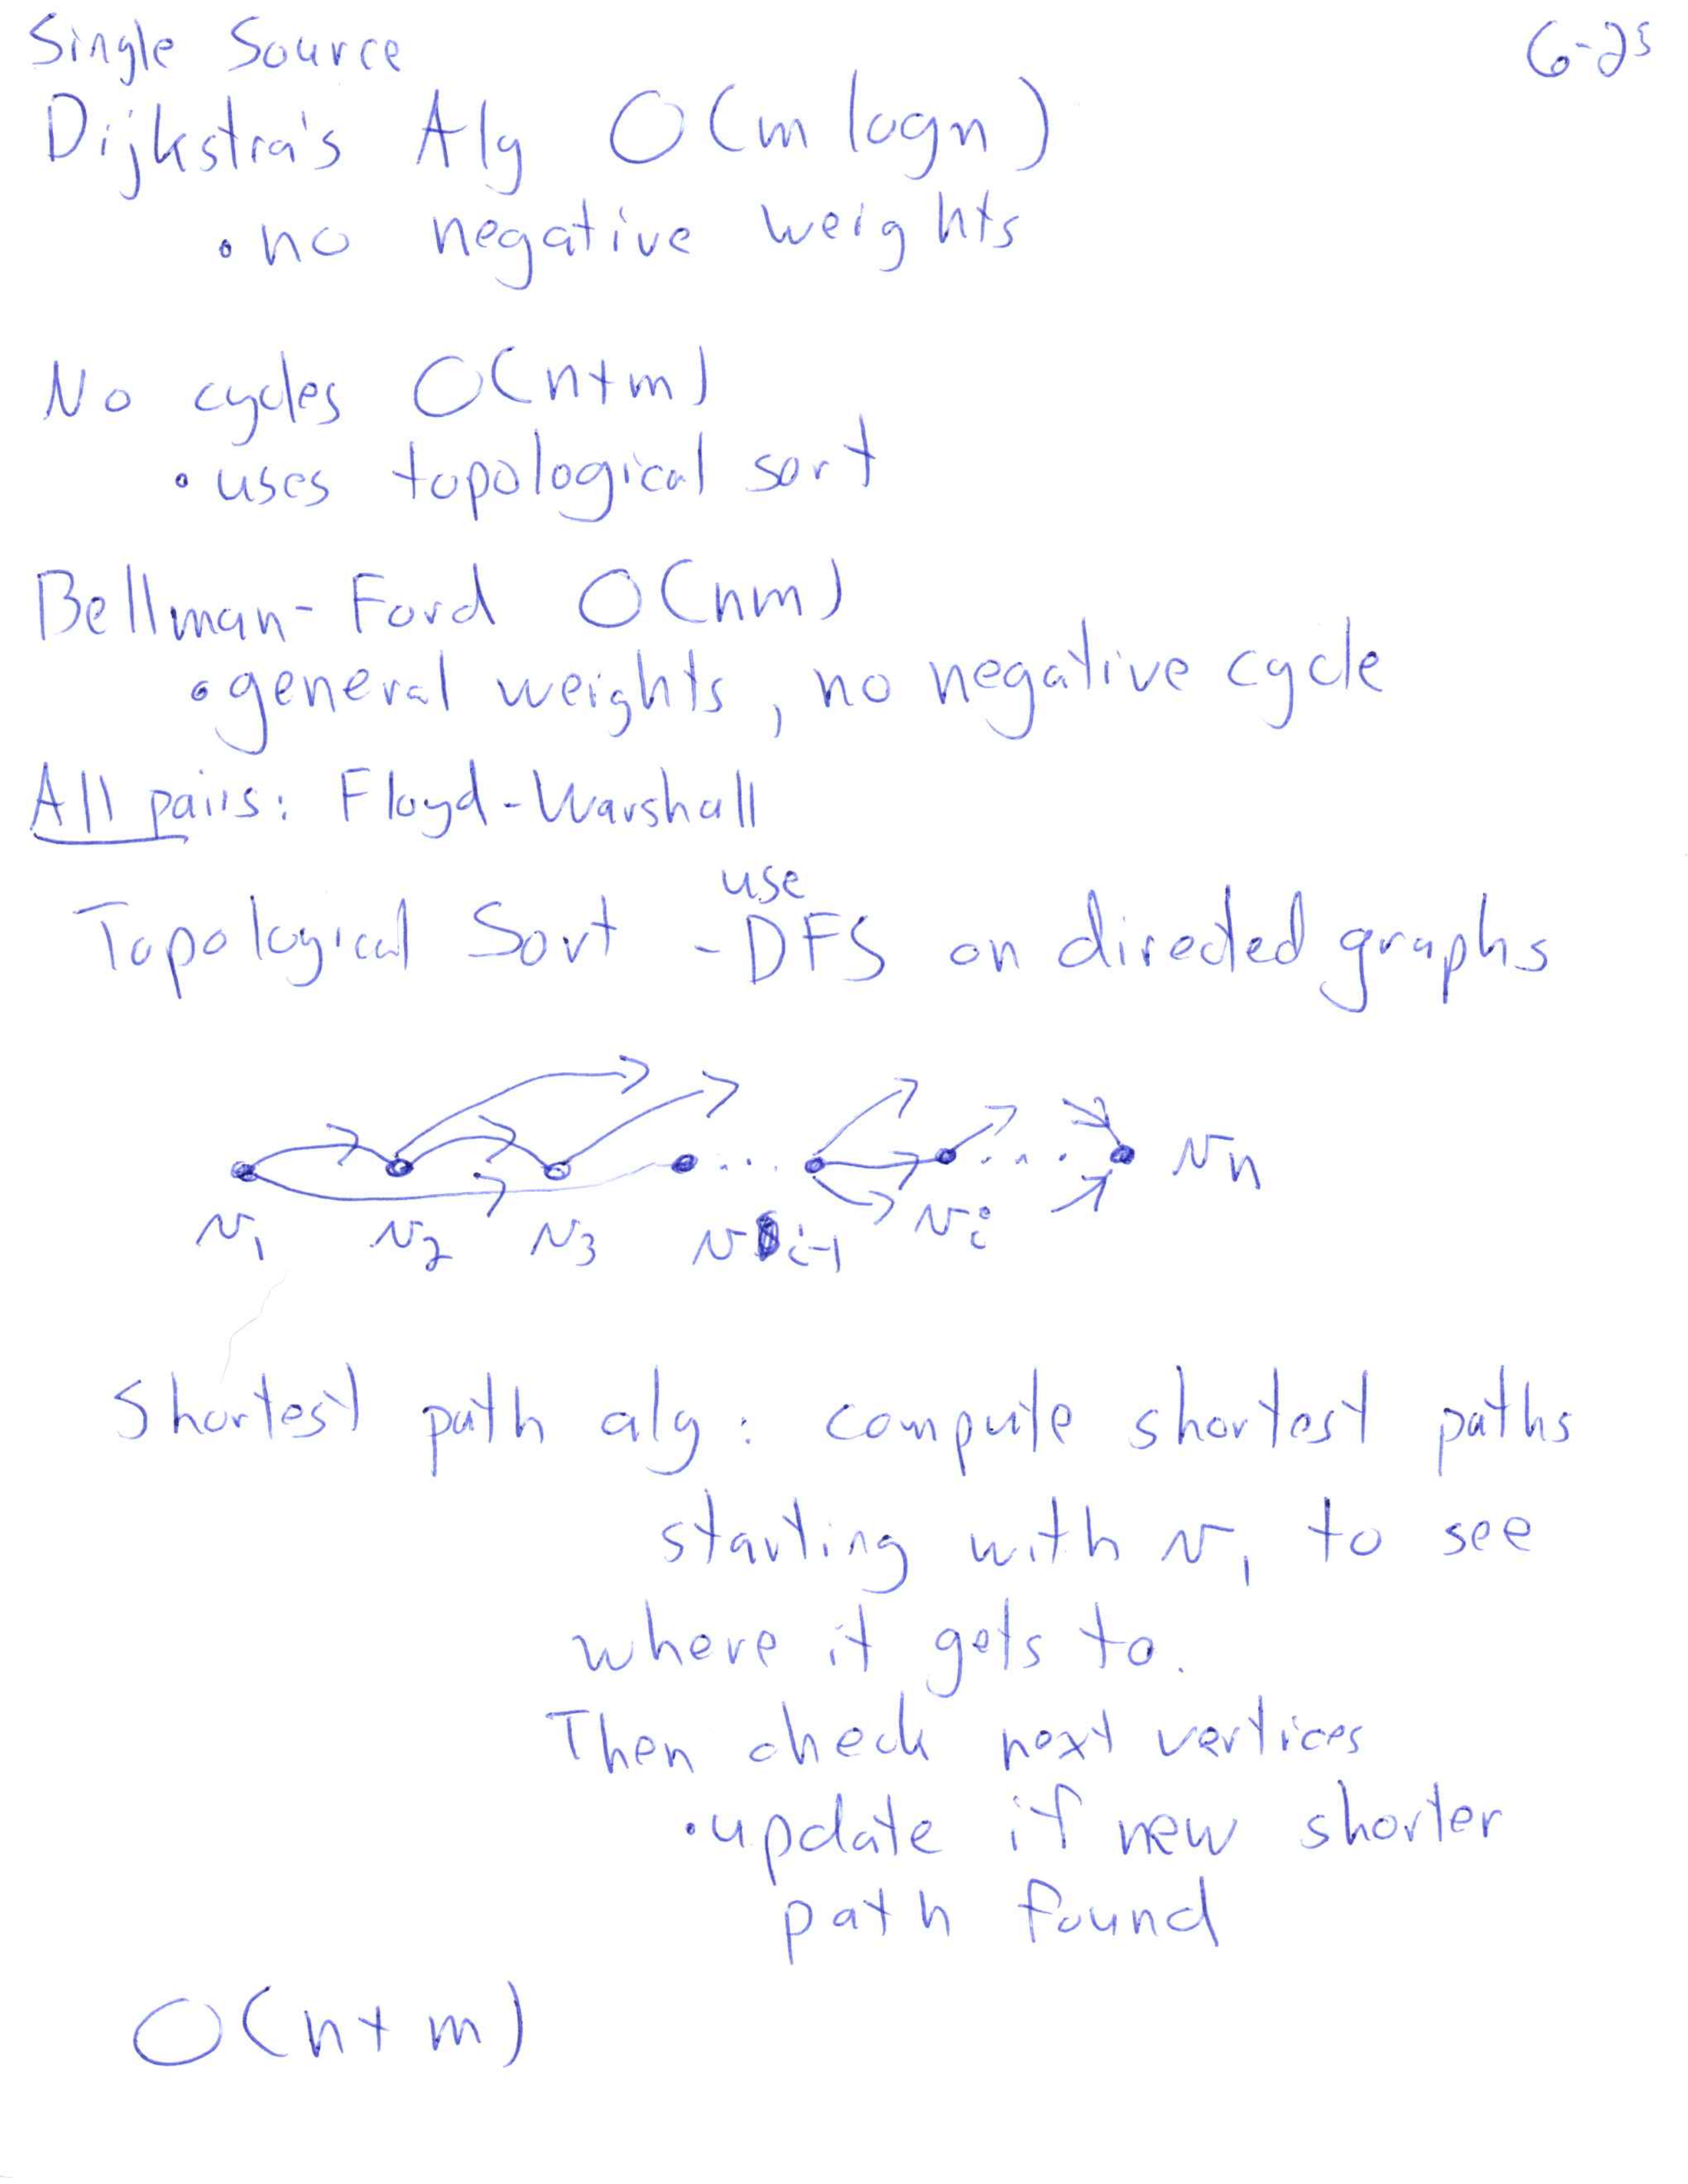 Single Source
6-25
Dijkstra's Alg O(m logn)
• no negative weights
No cycles O(n+m)
• uses topological sort
Bellman-Ford O(nm)
• general weights, no negative cycle
All pairs: Floyd-Warshall
use
Topological Sort - DFS on directed graphs
... ...
v1 v2 v3 vi-1 vi vn
Shortest path alg: compute shortest paths
starting with v1 to see
where it gets to.
Then check next vertices
• update if new shorter
path found
O(n+m)